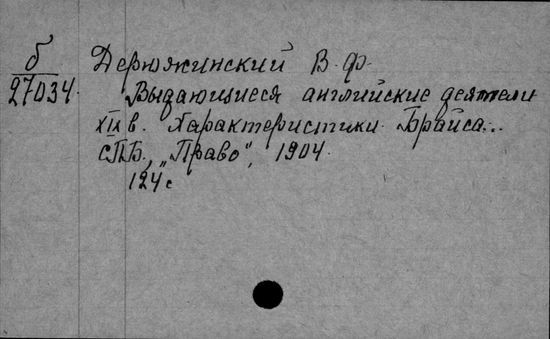 б
27034
Дерюжинский В. Ф.
Выдающиеся английские деятели
XIX в. Характеристики Брайса...
СПБ., „Право", 1904.
124 с